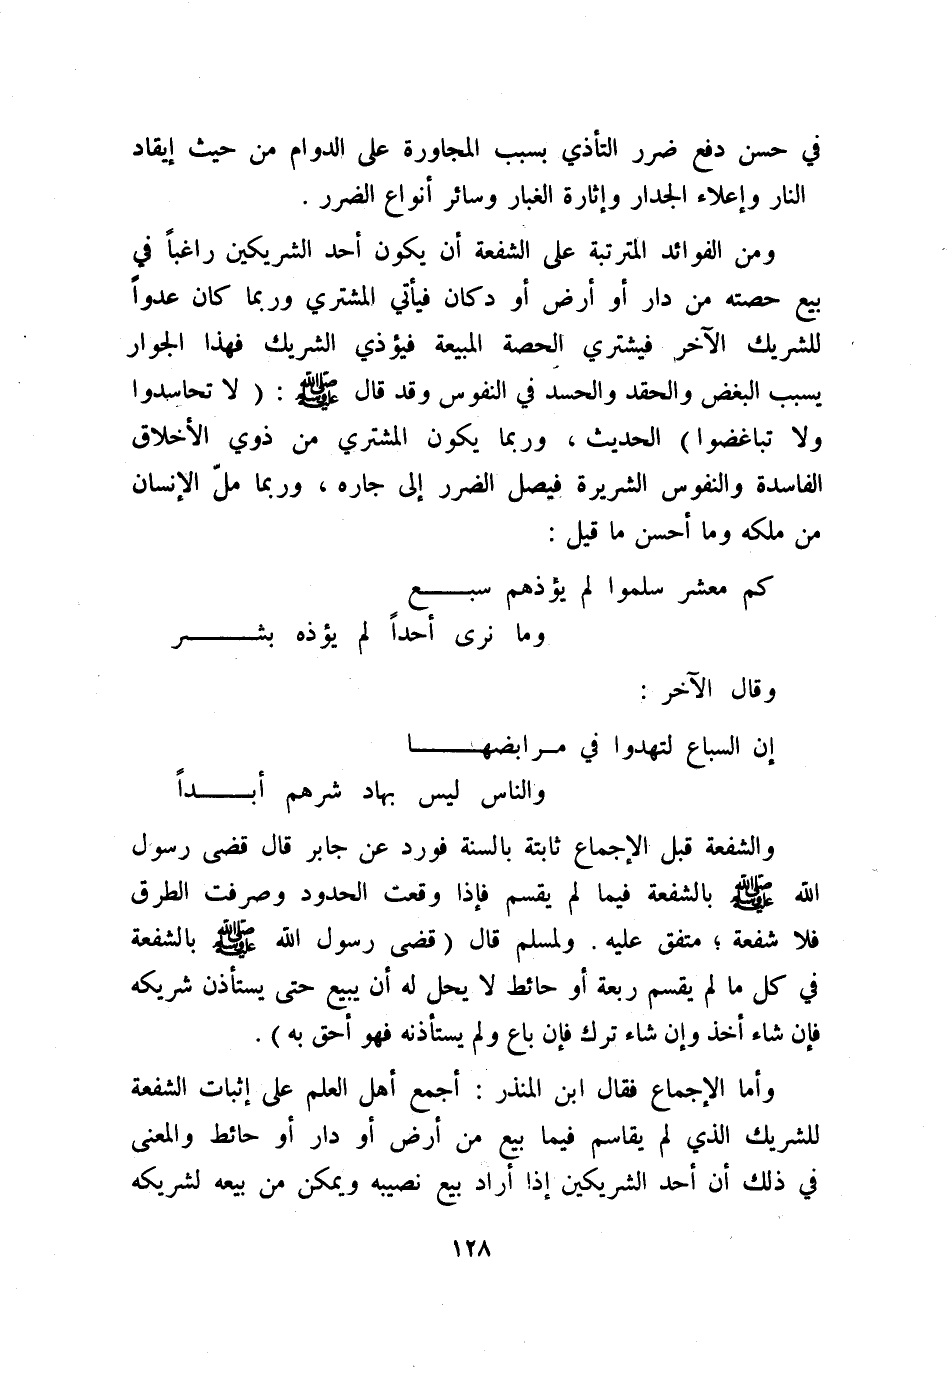 في حسن دفع ضرر التأذي بسبب المجاورة على الدوام من حيث إيقاد
النار وإعلاء الجدار وإثارة الغبار وسائر أنواع الضرر .
ومن الفوائد المترتبة على الشفعة أن يكون أحد الشريكين راغباً في
بيع حصته من دار أو أرض أو دكان فيأتي المشتري وربما كان عدواً
للشريك الآخر فيشتري الحصة المبيعة فيؤذي الشريك فهذا الجوار
يسبب البغض والحقد والحسد في النفوس وقد قال ﷺ : ( لا تحاسدوا
ولا تباغضوا ) الحديث ، وربما يكون المشتري من ذوي الأخلاق
الفاسدة والنفوس الشريرة فيصل الضرر إلى جاره ، وربما ملّ الإنسان
من ملكه وما أحسن ما قيل :
كم معشر سلموا لم يؤذهم سبـــــع
وما نرى أحداً لم يؤذه بشـــــــر
وقال الآخر :
إن السباع لتهدوا في مـرابضهـــــــا
والناس ليس بهاد شرهم أبـــــداً
والشفعة قبل الإجماع ثابتة بالسنة فورد عن جابر قال قضى رسول
الله ﷺ بالشفعة فيما لم يقسم فإذا وقعت الحدود وصرفت الطرق
فلا شفعة ؛ متفق عليه . ولمسلم قال ( قضى رسول الله ﷺ بالشفعة
في كل ما لم يقسم ربعة أو حائط لا يحل له أن يبيع حتى يستأذن شريكه
فإن شاء أخذ وإن شاء ترك فإن باع ولم يستأذنه فهو أحق به ) .
وأما الإجماع فقال ابن المنذر : أجمع أهل العلم على إثبات الشفعة
للشريك الذي لم يقاسم فيما بيع من أرض أو دار أو حائط والمعنى
في ذلك أن أحد الشريكين إذا أراد بيع نصيبه ويمكن من بيعه لشريكه
١٢٨